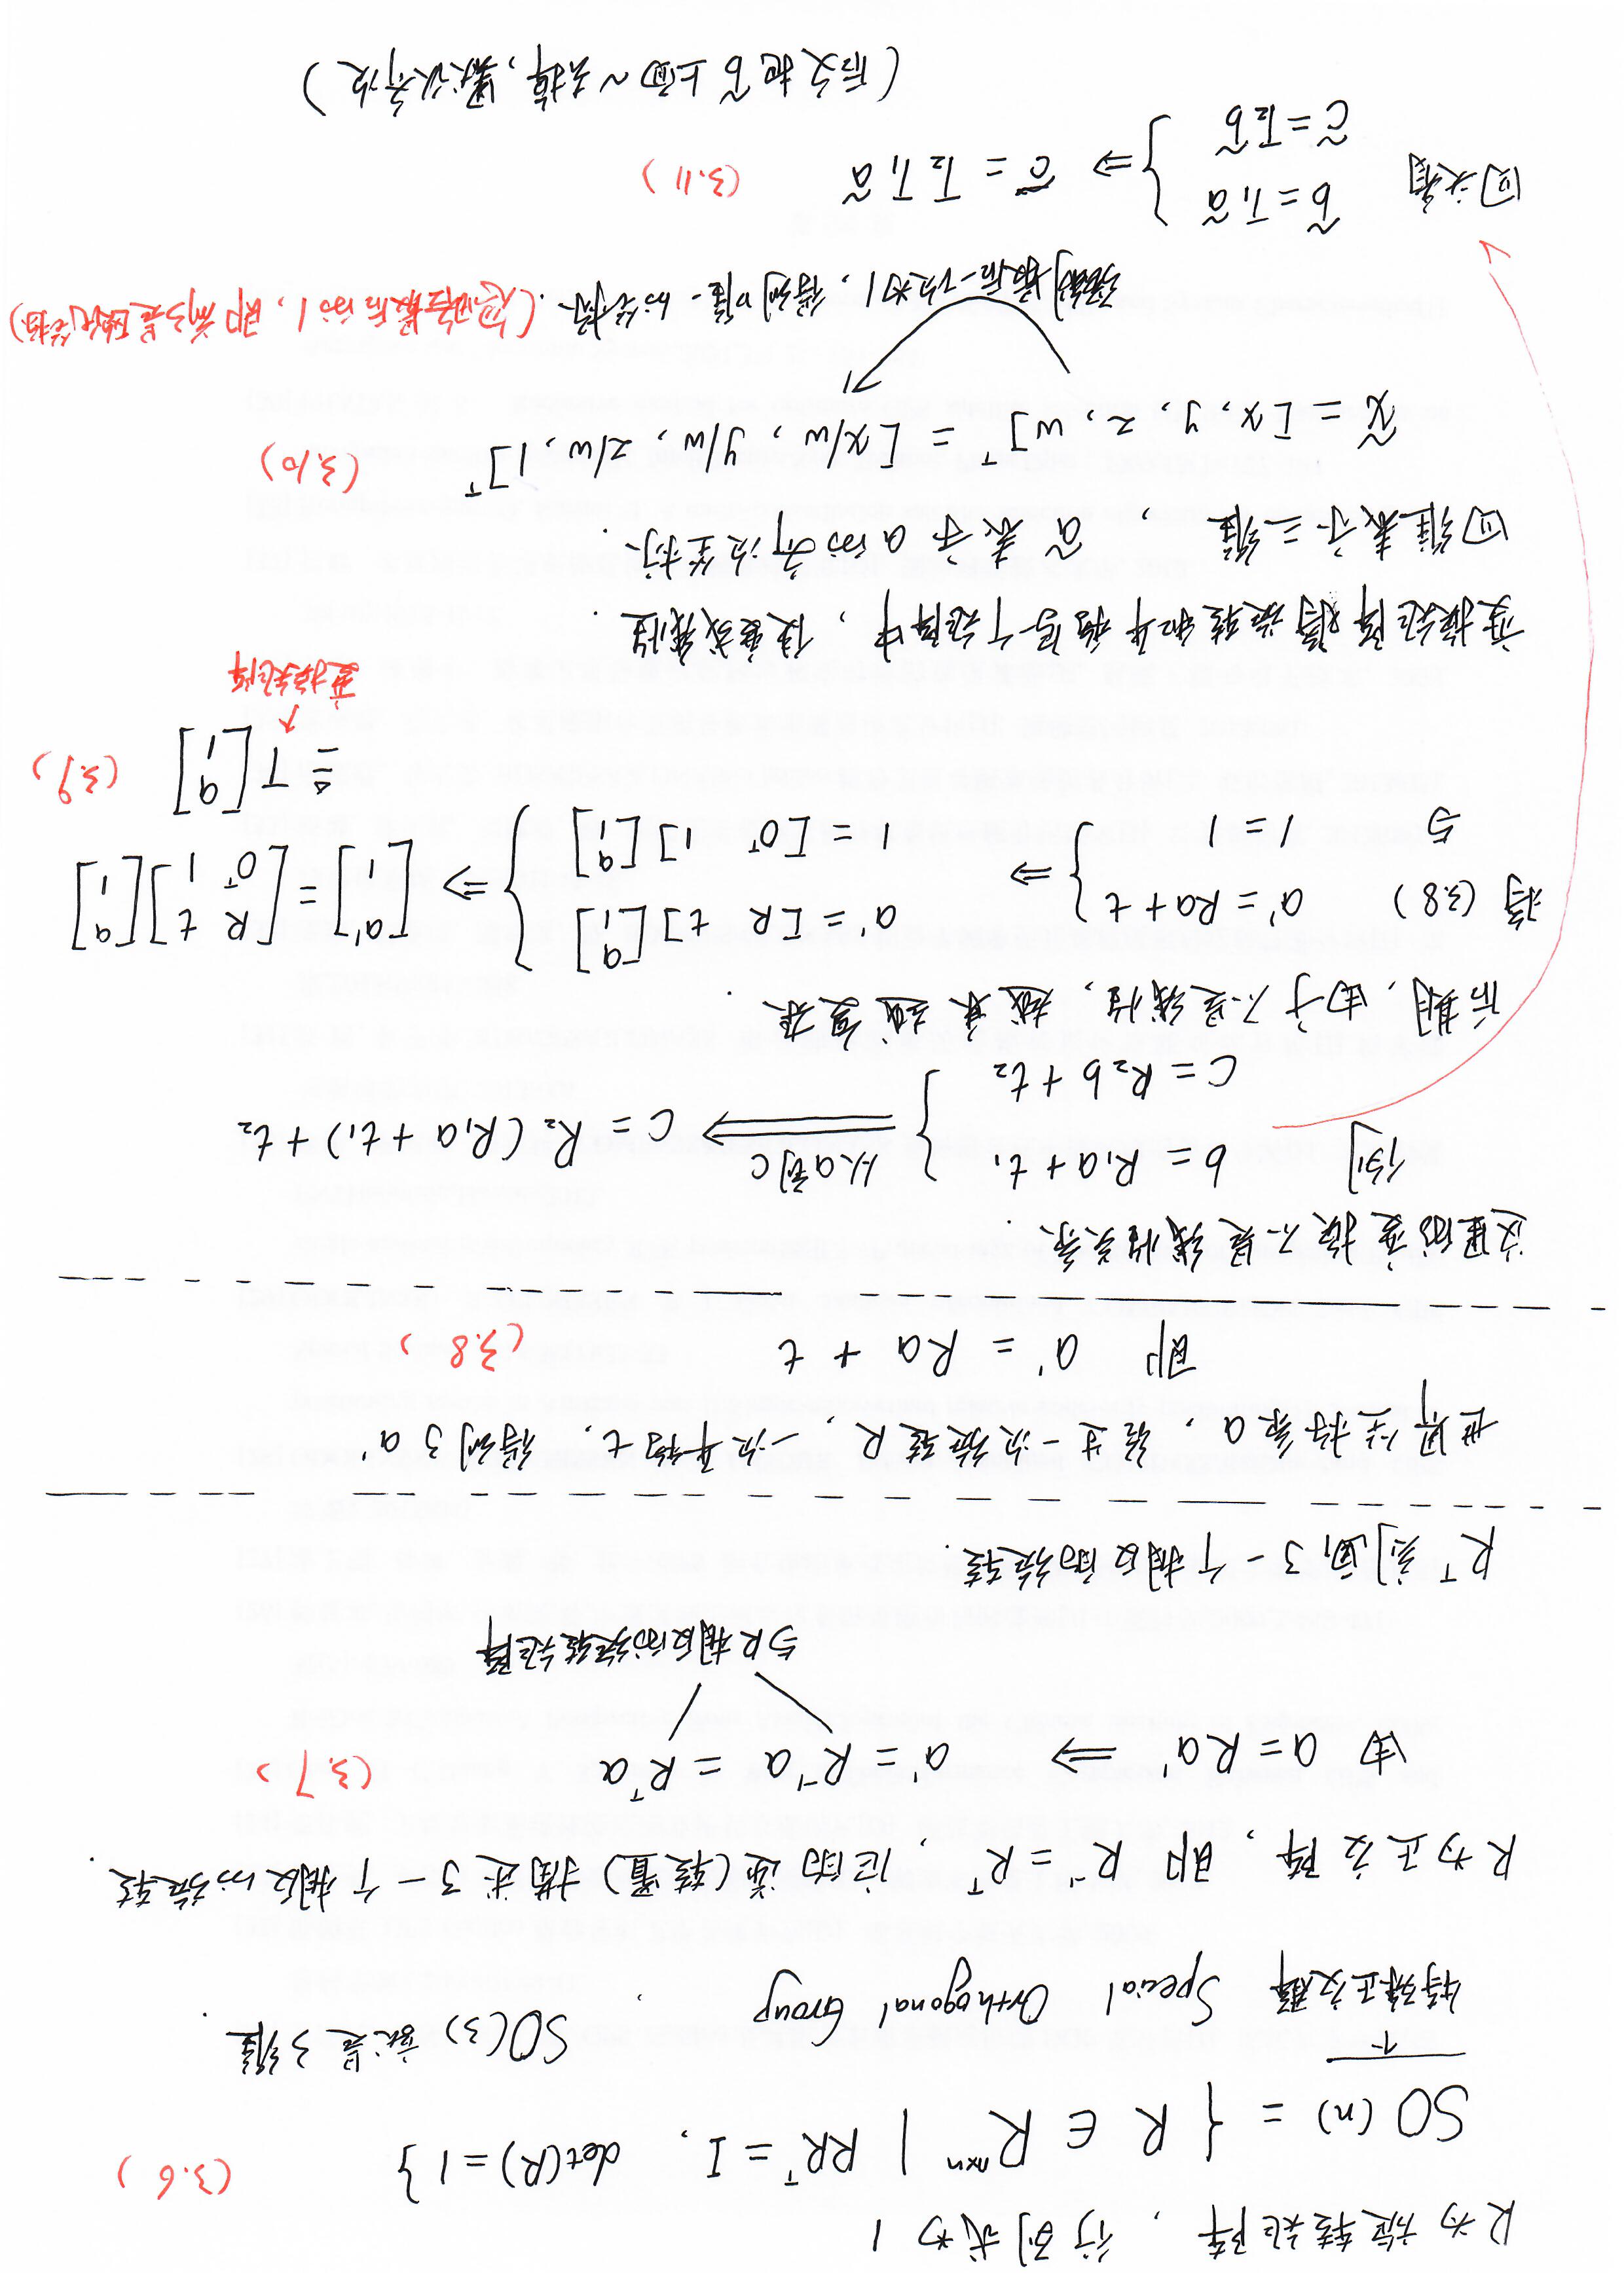 R为旋转矩阵，行列式为1
SO(n) = { R ∈ R^{n×n} | RR^T = I, det(R) = 1 } (3.6)
↑
特殊正交群 Special Orthogonal Group , SO(3) 就是3维.
R为正交阵, 即 R^{-1} = R^T, 它的逆(转置)描述了一个相反的旋转.
由 a = Ra' ⟹ a' = R^{-1}a = R^T a (3.7)
与R相反的旋转矩阵
R^T 刻画了一个相反的旋转.
世界坐标系a, 经过一次旋转R, 一次平移t, 得到了a'
即 a' = Ra + t (3.8)
这里的变换不是线性关系.
例 b = R₁a + t₁
c = R₂b + t₂ } 从a到c ⟹ c = R₂(R₁a + t₁) + t₂
后期, 由于不是线性, 越乘越复杂.
将 (3.8) a' = Ra + t
与 1 = 1 } ⇒ a' = [R t][a 1]
1 = [0^T 1][a 1] } ⇒ [a' 1] = [R t 0^T 1][a 1]
≜ T[a 1] (3.9)
↑
变换矩阵
变换矩阵将旋转和平移写一个矩阵中, 使变成线性.
四维表示三维, ã 表示 a的齐次坐标.
x̃ = [x, y, z, w]^T = [x/w, y/w, z/w, 1]^T (3.10)
强制最后一项为1, 得到唯一的坐标. (忽略最后的1, 即前3是欧氏坐标)
回头看 b̃ = T₁ã
c̃ = T₂b̃ } ⇒ c̃ = T₂T₁ã (3.11)
(后文把b̃上面~去掉, 默认齐次)